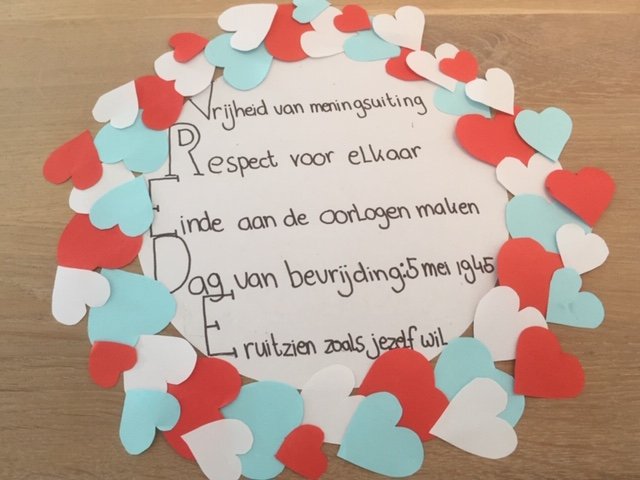 Vrijheid van meningsuiting
Respect voor elkaar
Einde aan de oorlogen maken
Dag van bevrijding:5 mei 1945
Eruitzien zoals jezelf wil